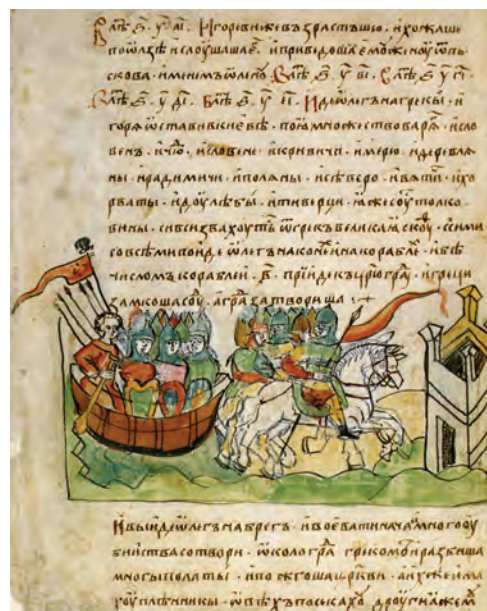 В лѣт҃ . ѕ҃ . у҃ . аı҃ . Игоревижевъзрастъшю . ихожаше
поѡлзѣ ислоушашаеⷢ . иприведошаемоуженоу ѿпь
скова . именимъ ѡлено . В лѣт҃ . ѕ҃ . у҃ . вı҃ . В лѣт҃ ѕ҃ у҃ гı҃ .
В лѣт҃ . ѕ҃ . у҃ . дı҃ . В лѣт҃ . ѕ҃ . у҃ . еı҃ . Иде ѡлегънагрекы . и
горѧ ѡставивкиевѣ . поꙗмножествоварѧⷢ . исло
венъ . ичюⷣ . исловене . икривичи . имерю . идеревлѧ
ны . ирадимичи . иполѧны . исѣверо . ивѧтиⷱ . ихъ
рваты . идоулѣбы . итиверци . ꙗжесоуⷮ толко
вины . сивсизвахоутьⷭ ѿгрекъ великаѧ скоуⷴ . ссими
совсѣмипоиде ѡлегънаконеⷯ инакораблеⷯ . ивѣ
числомъкораблеи . в҃ . приидекъцрюграⷣ . игреци
замкошасоуⷣ . аграⷣзатвориша
Ивыиде ѡлегънабрегъ . ивоеватиначаⷮ . имногооу
бииствасотвори . ѡколограⷣ грекомъ иразбиша
многыполаты . ипожгошацр҃кви . аихжеимаⷯ
оуплѣнникы . ѡвѣхъпосѣкахоⷹ дроугиаⷤжеⷨ